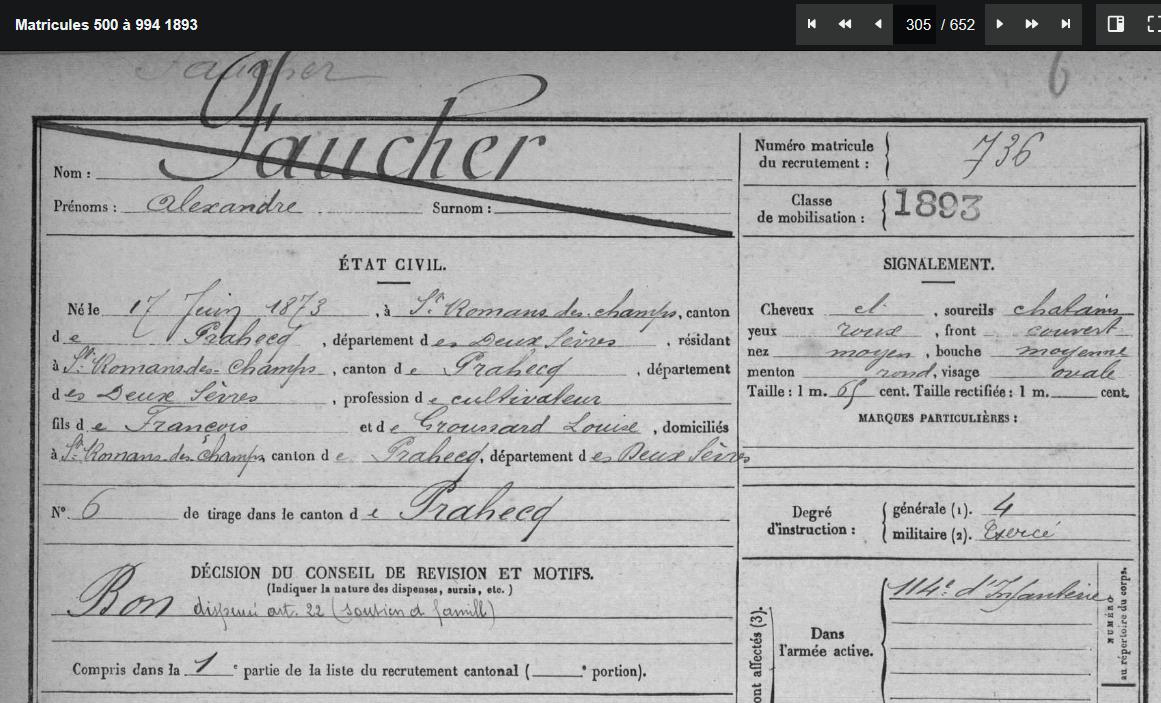 Matricules 500 à 994 1893
305 / 652
Faucher
6
Nom : Faucher
Prénoms : Alexandre Surnom :
Numéro matricule du recrutement : 736
Classe de mobilisation : 1893
ÉTAT CIVIL.
Né le 17 Juin 1873, à St Romans des-champs, canton
de Prahecq, département des Deux Sèvres, résidant
à St Romans des-Champs, canton de Prahecq, département
des Deux Sèvres, profession de cultivateur
fils de François et de Groussard Louise, domiciliés
à St Romans des Champs, canton de Prahecq, département des Deux Sèvres
N° 6 de tirage dans le canton de Prahecq
DÉCISION DU CONSEIL DE REVISION ET MOTIFS.
(Indiquer la nature des dispenses, sursis, etc.)
Bon dispensé art. 22 (soutien d famill)
Compris dans la 1e partie de la liste du recrutement cantonal ( e portion).
SIGNALEMENT.
Cheveux ct, sourcils chatains
yeux roux, front couvert
nez moyen, bouche moyenne
menton rond, visage ovale
Taille : 1 m. 65 cent. Taille rectifiée : 1 m. cent.
MARQUES PARTICULIÈRES :
Degré d'instruction :
générale (1). 4
militaire (2). Exercé
ont affectés (3).
Dans l'armée active.
114e d'Infanterie
NUMÉRO
au répertoire du corps.